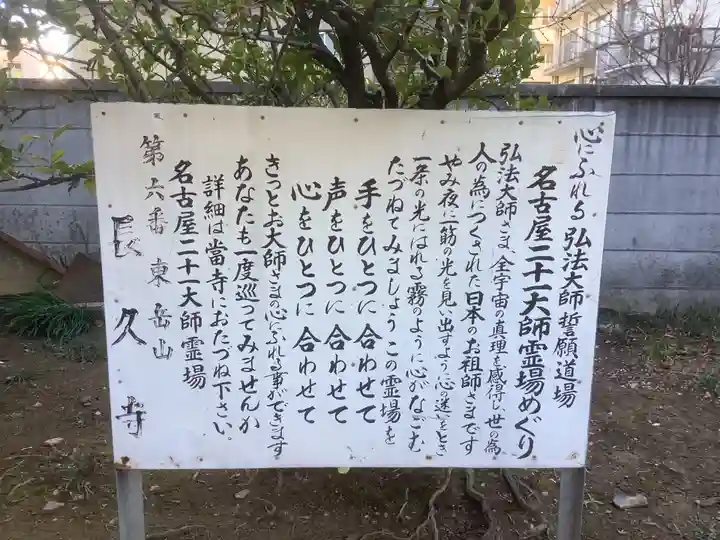 心にふれる 弘法大師誓願道場
名古屋二十一大師霊場めぐり
弘法大師さま、全宇宙の真理を感得し、世の為
人の為につくされた日本のお祖師さまです
やみ夜に一筋の光を見い出すよう、心の迷いをとき
一条の光にはれる霧のように心がなごむ
たづねてみましょうこの霊場を
手をひとつに合わせて
声をひとつに合わせて
心をひとつに合わせて
きっとお大師さまの心にふれる事ができます
あなたも一度巡ってみませんか
詳細は當寺におたづね下さい。
名古屋二十一大師霊場
第六番 東岳山
長久寺